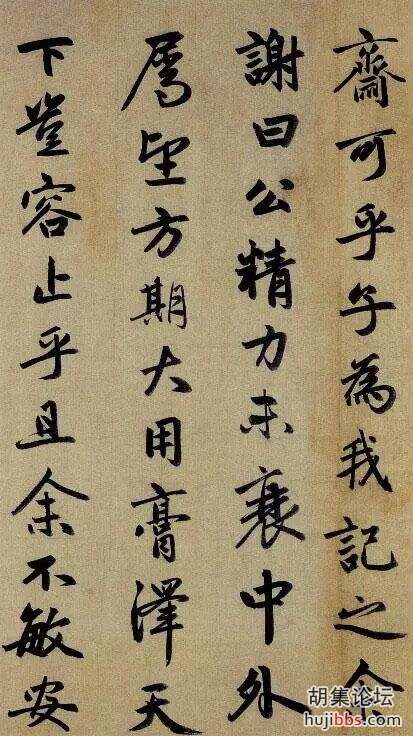 齋可乎子為我記之余
謝曰公精力未衰中外
属望方期大用膏澤天
下豈容止乎且余不敏安
胡集论坛
hujibbs.com